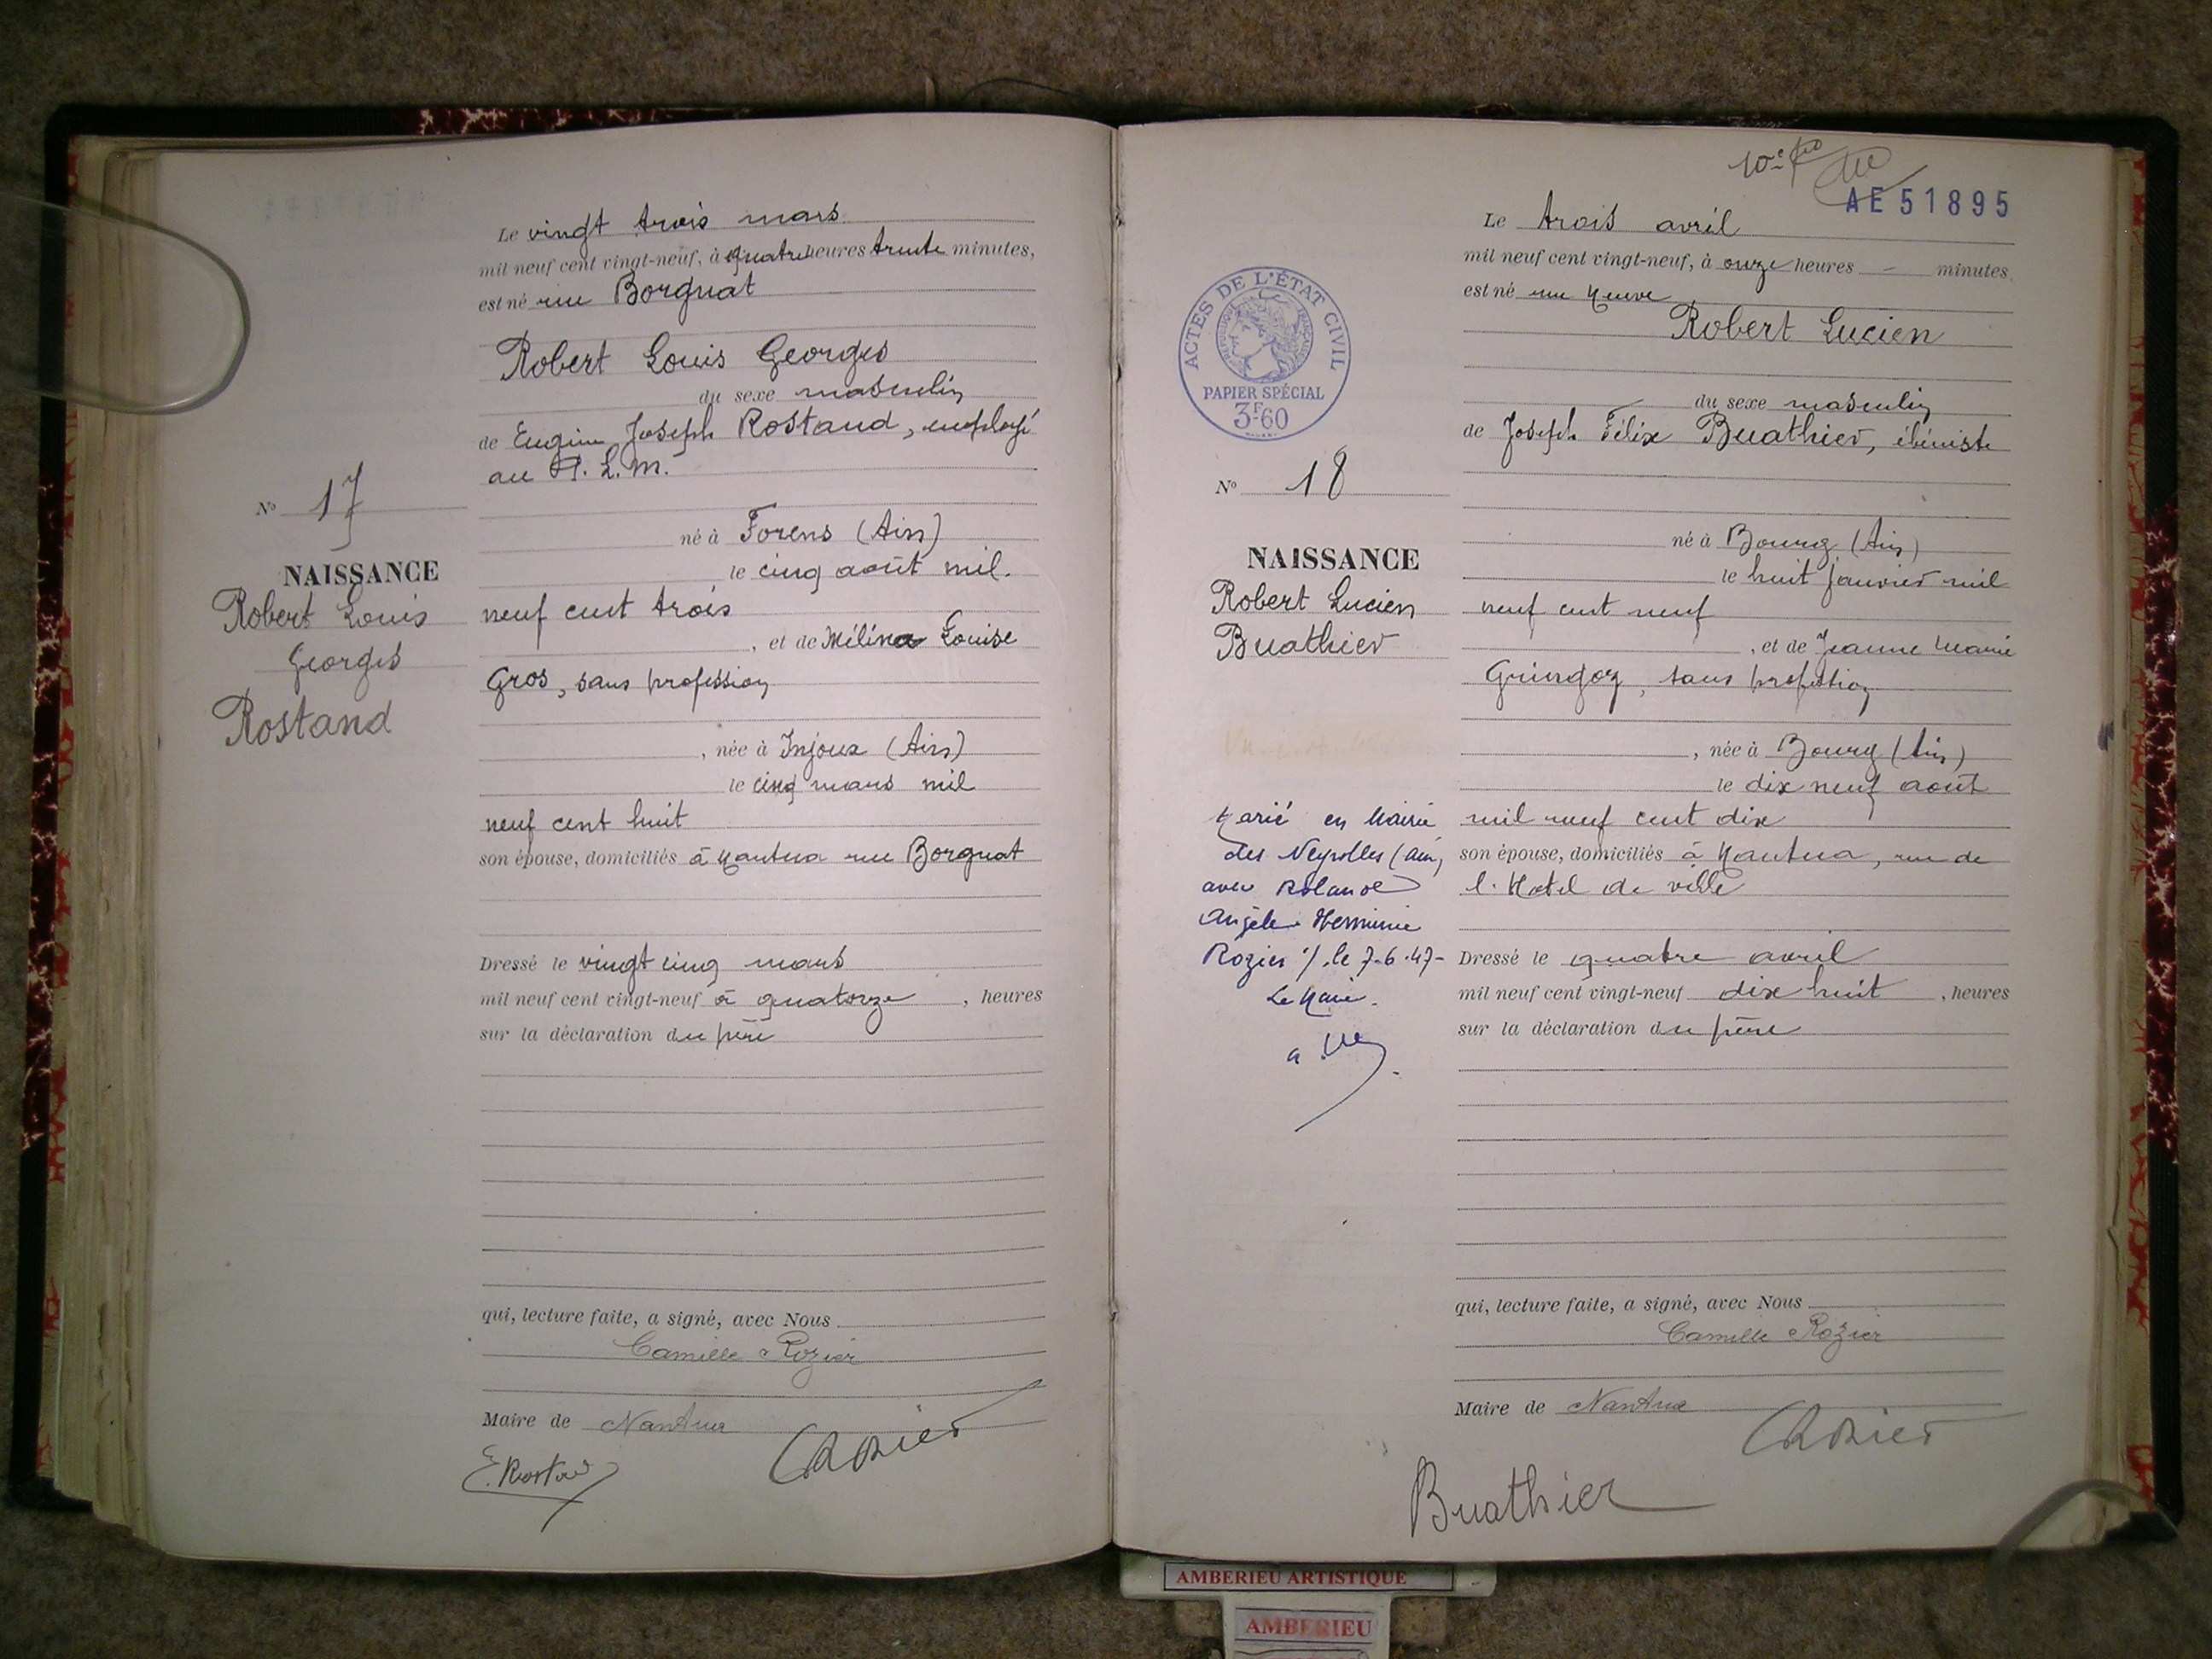 Le vingt trois mars
mil neuf cent vingt-neuf, à quatre heures trente minutes,
est né rue Borgnat
Robert Louis Georges
du sexe masculin
de Eugène Joseph Rostand, employé
au P. L. M.
né à Forens (Ain)
le cinq août mil
neuf cent trois
, et de Mélina Louise
Gros, sans profession
, née à Injoux (Ain)
le cinq mars mil
neuf cent huit
son épouse, domiciliés à Nantua rue Borgnat
Dressé le vingt cinq mars
mil neuf cent vingt-neuf à quatorze , heures
sur la déclaration du père
qui, lecture faite, a signé, avec Nous
Camille Rozier
Maire de Nantua
E. Rostand
CRozier
No 17
NAISSANCE
Robert Louis
Georges
Rostand
10e fo
AE 51895
Le trois avril
mil neuf cent vingt-neuf, à onze heures - minutes.
est né rue Neuve
Robert Lucien
du sexe masculin
de Joseph Félix Buathier, ébéniste
né à Bourg (Ain)
le huit janvier mil
neuf cent neuf
, et de Jeanne Marie
Gringoz, sans profession
, née à Bourg (Ain)
le dix neuf août
mil neuf cent dix
son épouse, domiciliés à Nantua, rue de
l'Hotel de ville
Dressé le quatre avril
mil neuf cent vingt-neuf dix huit , heures
sur la déclaration du père
qui, lecture faite, a signé, avec Nous
Camille Rozier
Maire de Nantua
CRozier
Buathier
ACTES DE L'ÉTAT CIVIL
RÉPUBLIQUE FRANÇAISE
PAPIER SPÉCIAL
3F.60
No 18
NAISSANCE
Robert Lucien
Buathier
Marié en Mairie
des Neyrolles (Ain)
avec Rolande
Angèle Herminie
Rozier /. le 7-6-47-
Le Maire.
AMBERIEU ARTISTIQUE
AMBERIEU